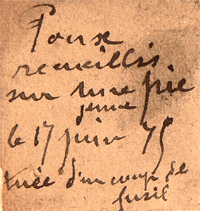 Poux
recueillis
sur une pie
jeune
le 17 juin 75
tuée d'un coup de
fusil